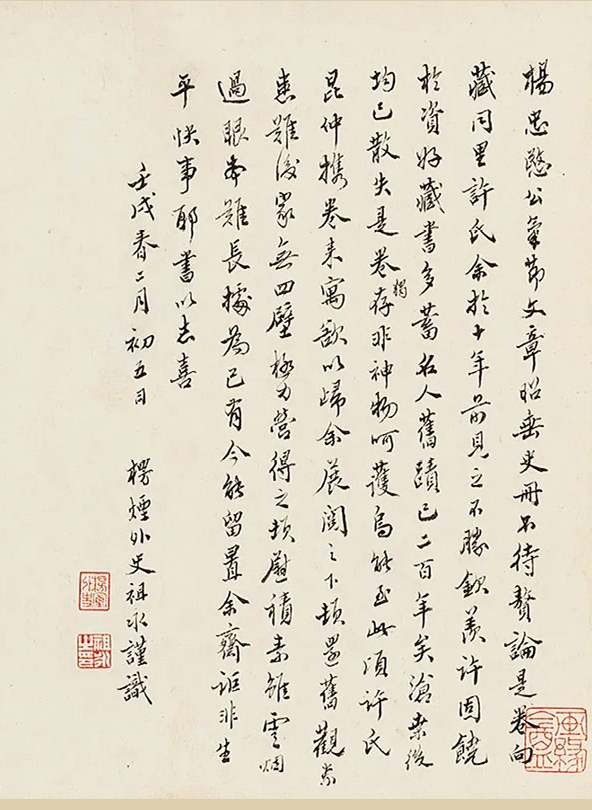 楊忠愍公氣節文章昭垂史冊不待贅論是卷向
藏同里許氏余於十年前見之不勝欽羨許固饒
於資好藏書多蓄名人舊蹟已二百年矣滄桒後
均已散失是卷獨存非神物呵護烏能至此頃許氏
昆仲攜卷來寓歙以歸余展閱之下頓還舊觀余
患難後家無四壁極力營得之頓慰積素雖雲烟
過眼本難長據為己有今能留置余齋詎非生
平快事耶書以志喜
壬戌春二月初五日　楞煙外史祖永謹識